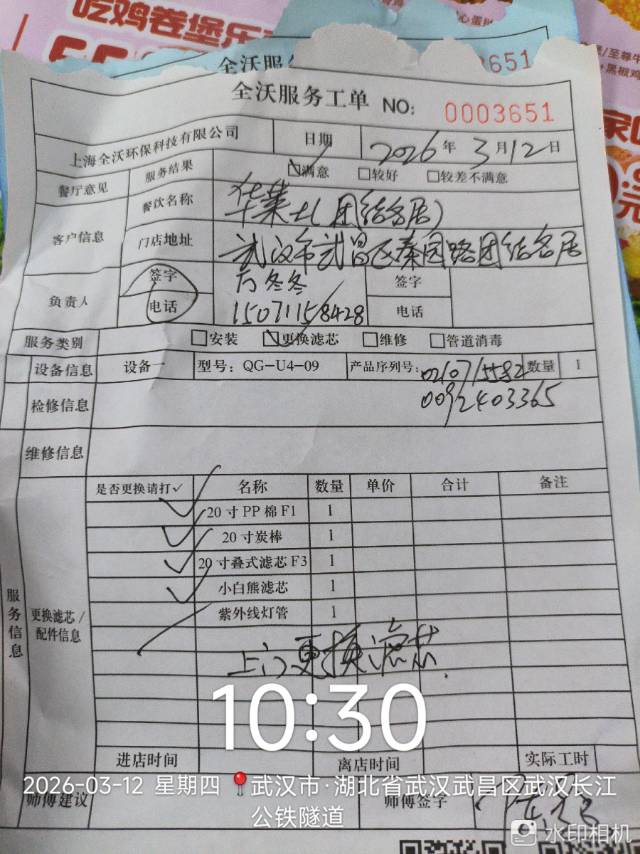 吃鸡卷堡乐
心蛋挞
全沃服
3651
全沃服务工单 NO: 0003651
上海全沃环保科技有限公司 日期 2026年3月12日
餐厅意见 服务结果 ☑满意 □较好 □较差不满意
客户信息 餐饮名称 华莱士(团结名居)
门店地址 武汉市武昌区秦园路团结名居
负责人 签字 冬冬 签字
电话 15071158428 电话
服务类别 □安装 ☑更换滤芯 □维修 □管道消毒
设备信息 设备一 型号: QG-U4-09 产品序列号: 0210715582 数量 1
检修信息 0092403365
维修信息
是否更换请打✓ 名称 数量 单价 合计 备注
✓ 20寸PP棉F1 1
✓ 20寸炭棒 1
✓ 20寸叠式滤芯F3 1
✓ 小白熊滤芯 1
紫外线灯管 1
服务信息 更换滤芯/配件信息
上门更换滤芯
10:30
进店时间 离店时间 实际工时
2026-03-12 星期四 武汉市·湖北省武汉武昌区武汉长江公铁隧道
师傅建议 师傅签字
水印相机